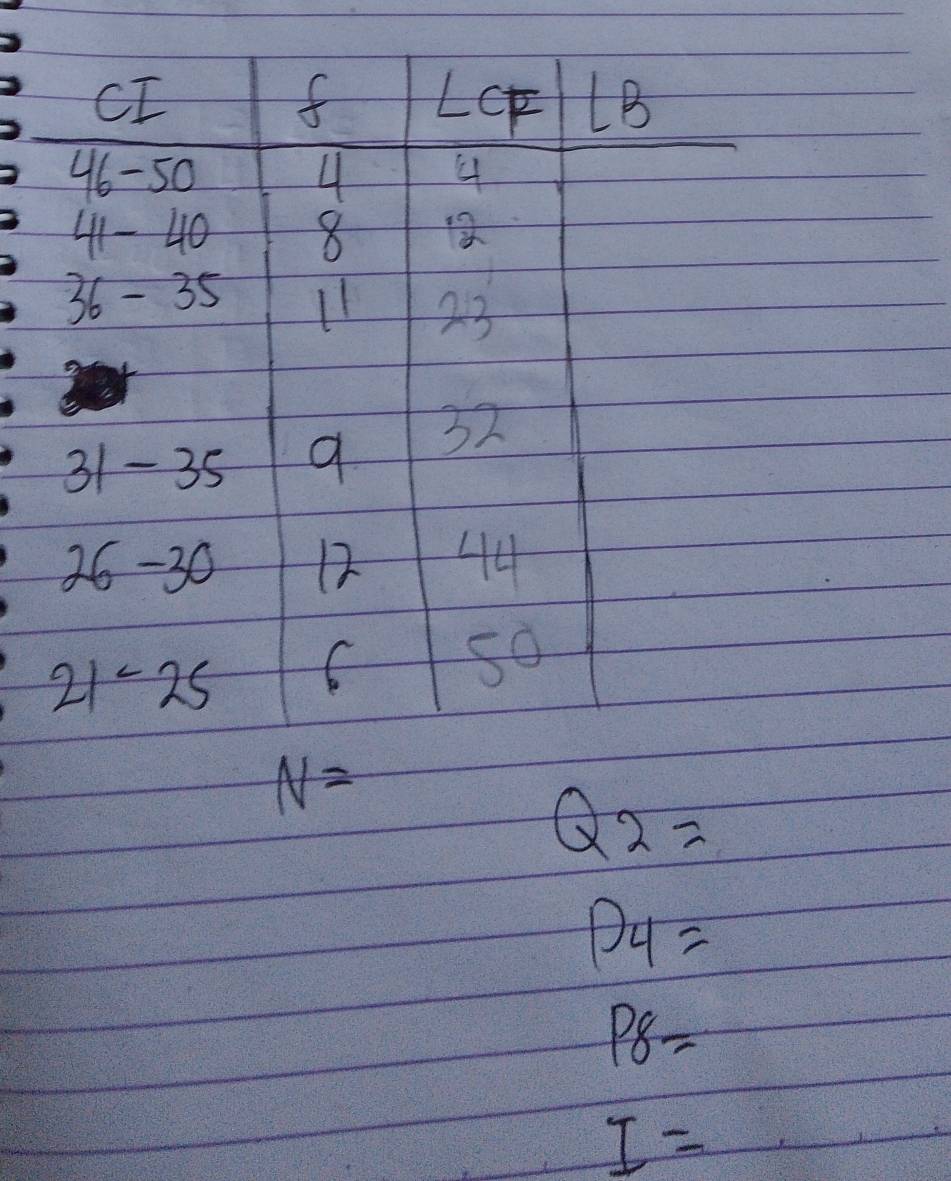 CI f LCF LB
46-50 4 4
41-40 8 12
36-35 11 23
31-35 9 32
26-30 12 44
21-25 6 50
N=
Q2=
D4=
P8=
I=